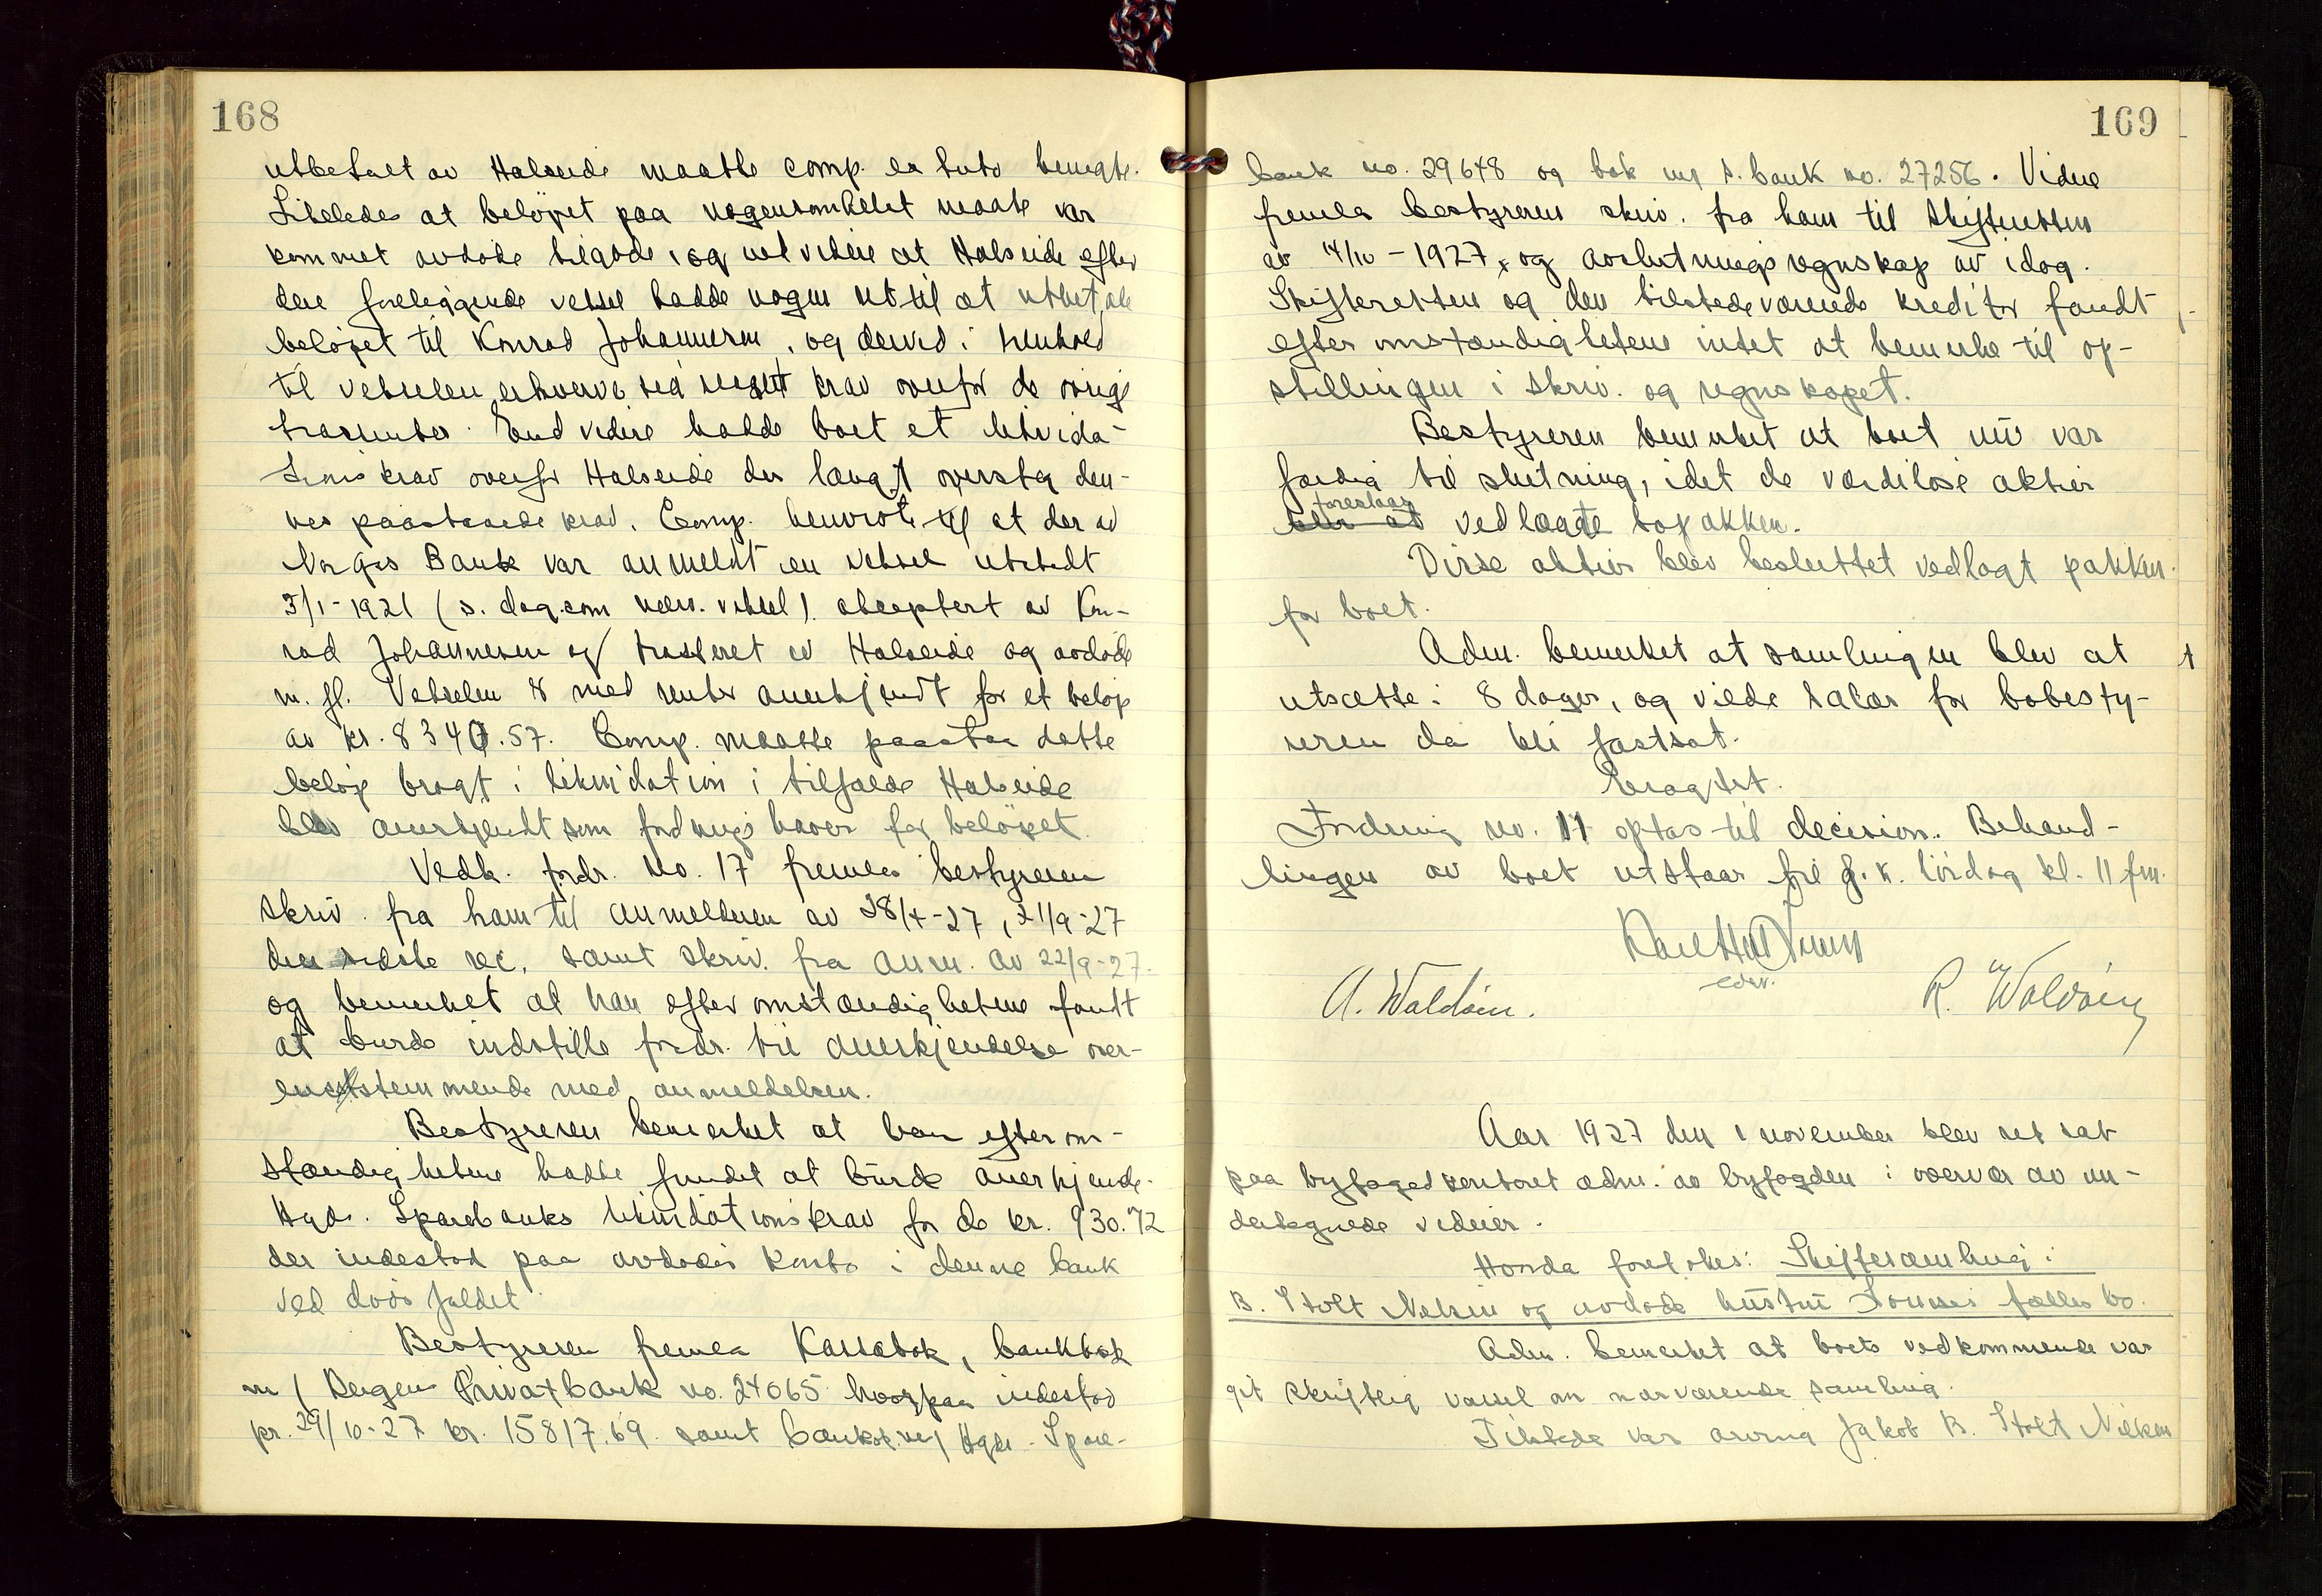 168
utbetalt av Halseide maatte comp. ex tuto benegte.
Likeledes at beløpet paa nogensomhelst maate var
kommet avdøde tilgode, og vel videre at Halseide efter
den foreliggende veksel hadde nogen ret til at utbetale
beløpet til Konrad Johannesen, og derved i henhold
til vekselen erhverve sig regret krav overfor de øvrige
trassenter. End videre hadde boet et likvida-
tionskrav overfor Halseide der langt oversteg den-
nes paastaaede krav. Comp. henviste til at der av
Norges Bank var anmeldt en veksel utstedt
3/1-1921 (s. dag som nærv. veksel) akceptert av Kon-
rad Johannesen og trasseret av Halseide og avdøde
m. fl. Vekselen er med renter anerkjendt for et beløp
av kr. 8340.57. Comp. maatte paastaa dette
beløp bragt i likvidation i tilfælde Halseide
blev anerkjendt som fordringshaver for beløpet.
Vedk. fordr. No. 17 fremla bestyreren
skriv. fra ham til anmelderen av 28/4-27, 21/9-27
den sidste rec. samt skriv. fra anm. av 22/9-27.
og bemerket at han efter omstændighetene fandt
at burde indstille fordr. til anerkjendelse over-
ensstemmende med anmeldelsen.
Bestyreren bemerket at han efter om-
stændighetene hadde fundet at burde anerkjende
Hgds. Sparebanks likvidationskrav for de kr. 930.72
der indestod paa avdødes konto i denne bank
ved dødsfaldet.
Bestyreren fremla Kassabok, bankbok
m/ Bergens Privatbank no. 24065 hvorpaa indestod
pr. 29/10-27 kr. 15817.69 samt bankbok m/ Hgds. Spare-
169
bank no. 29648 og bok m/ s. bank no. 27256. Videre
fremla bestyreren skriv. fra ham til Skifteretten
av 14/10-1927, og avslutningsregnskap av idag.
Skifteretten og den tilstedeværende kreditor fandt
efter omstændighetene intet at bemerke til op-
stillingen i skriv. og regnskapet.
Bestyreren bemerket at boet nu var
færdig til slutning, idet de værdiløse aktier
foreslaaes
vedlagte bopakken.
Disse aktier blev besluttet vedlagt pakken
for boet.
Adm. bemerket at samlingen blev at
utsætte i 8 dager, og vilde salær for bobesty-
reren da bli fastsat.
Eragtet.
Fordring no. 11 optas til decision. Behand-
lingen av boet utstaar til f. k. lørdag kl. 11 fm.
edv.
A. Waldsin.
Aar 1927 den 1 november blev ret sat
paa byfogedkontoret adm. av byfogden i overvær av un-
dertegnede vidner.
Hvorda foretokes: Skiftesamling i
B. Stolt Nielsen og avdøde hustru Louises fælles bo.
Adm. bemerket at boets vedkommende var
git skriftlig varsel om nærværende samling.
Tilstede var arving Jakob B. Stolt Nielsen